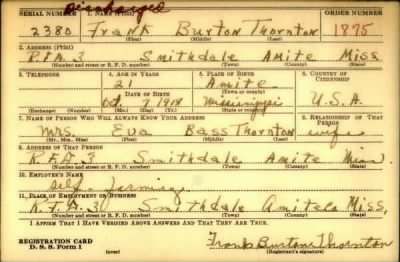 Discharged
SERIAL NUMBER 1. NAME (Print) ORDER NUMBER
2380 Frank Burton Thornton 1875
(First) (Middle) (Last)
2. ADDRESS (Print)
R.F.D. 3 Smithdale Amite Miss
(Number and street or R. F. D. number) (Town) (County) (State)
3. TELEPHONE 4. AGE IN YEARS 5. PLACE OF BIRTH 6. COUNTRY OF CITIZENSHIP
21 Amite
DATE OF BIRTH (Town or county)
Oct. 7 Mississippi U.S.A.
(Exchange) (Number) (Mo.) (Day) (Yr.) (State or country)
7. NAME OF PERSON WHO WILL ALWAYS KNOW YOUR ADDRESS 8. RELATIONSHIP OF THAT PERSON
Mrs. Eva Bass Thornton wife
(Mr., Mrs., Miss) (First) (Middle) (Last)
9. ADDRESS OF THAT PERSON
R.F.D. 3 Smithdale Amite Miss
(Number and street or R. F. D. number) (Town) (County) (State)
10. EMPLOYER'S NAME
Self - farming
11. PLACE OF EMPLOYMENT OR BUSINESS
R.F.D. 3 Smithdale Amite Co Miss.
(Number and street or R. F. D. number) (Town) (County) (State)
I AFFIRM THAT I HAVE VERIFIED ABOVE ANSWERS AND THAT THEY ARE TRUE.
REGISTRATION CARD
D. S. S. Form 1 (over) Frank Burton Thornton
(Registrant's signature)